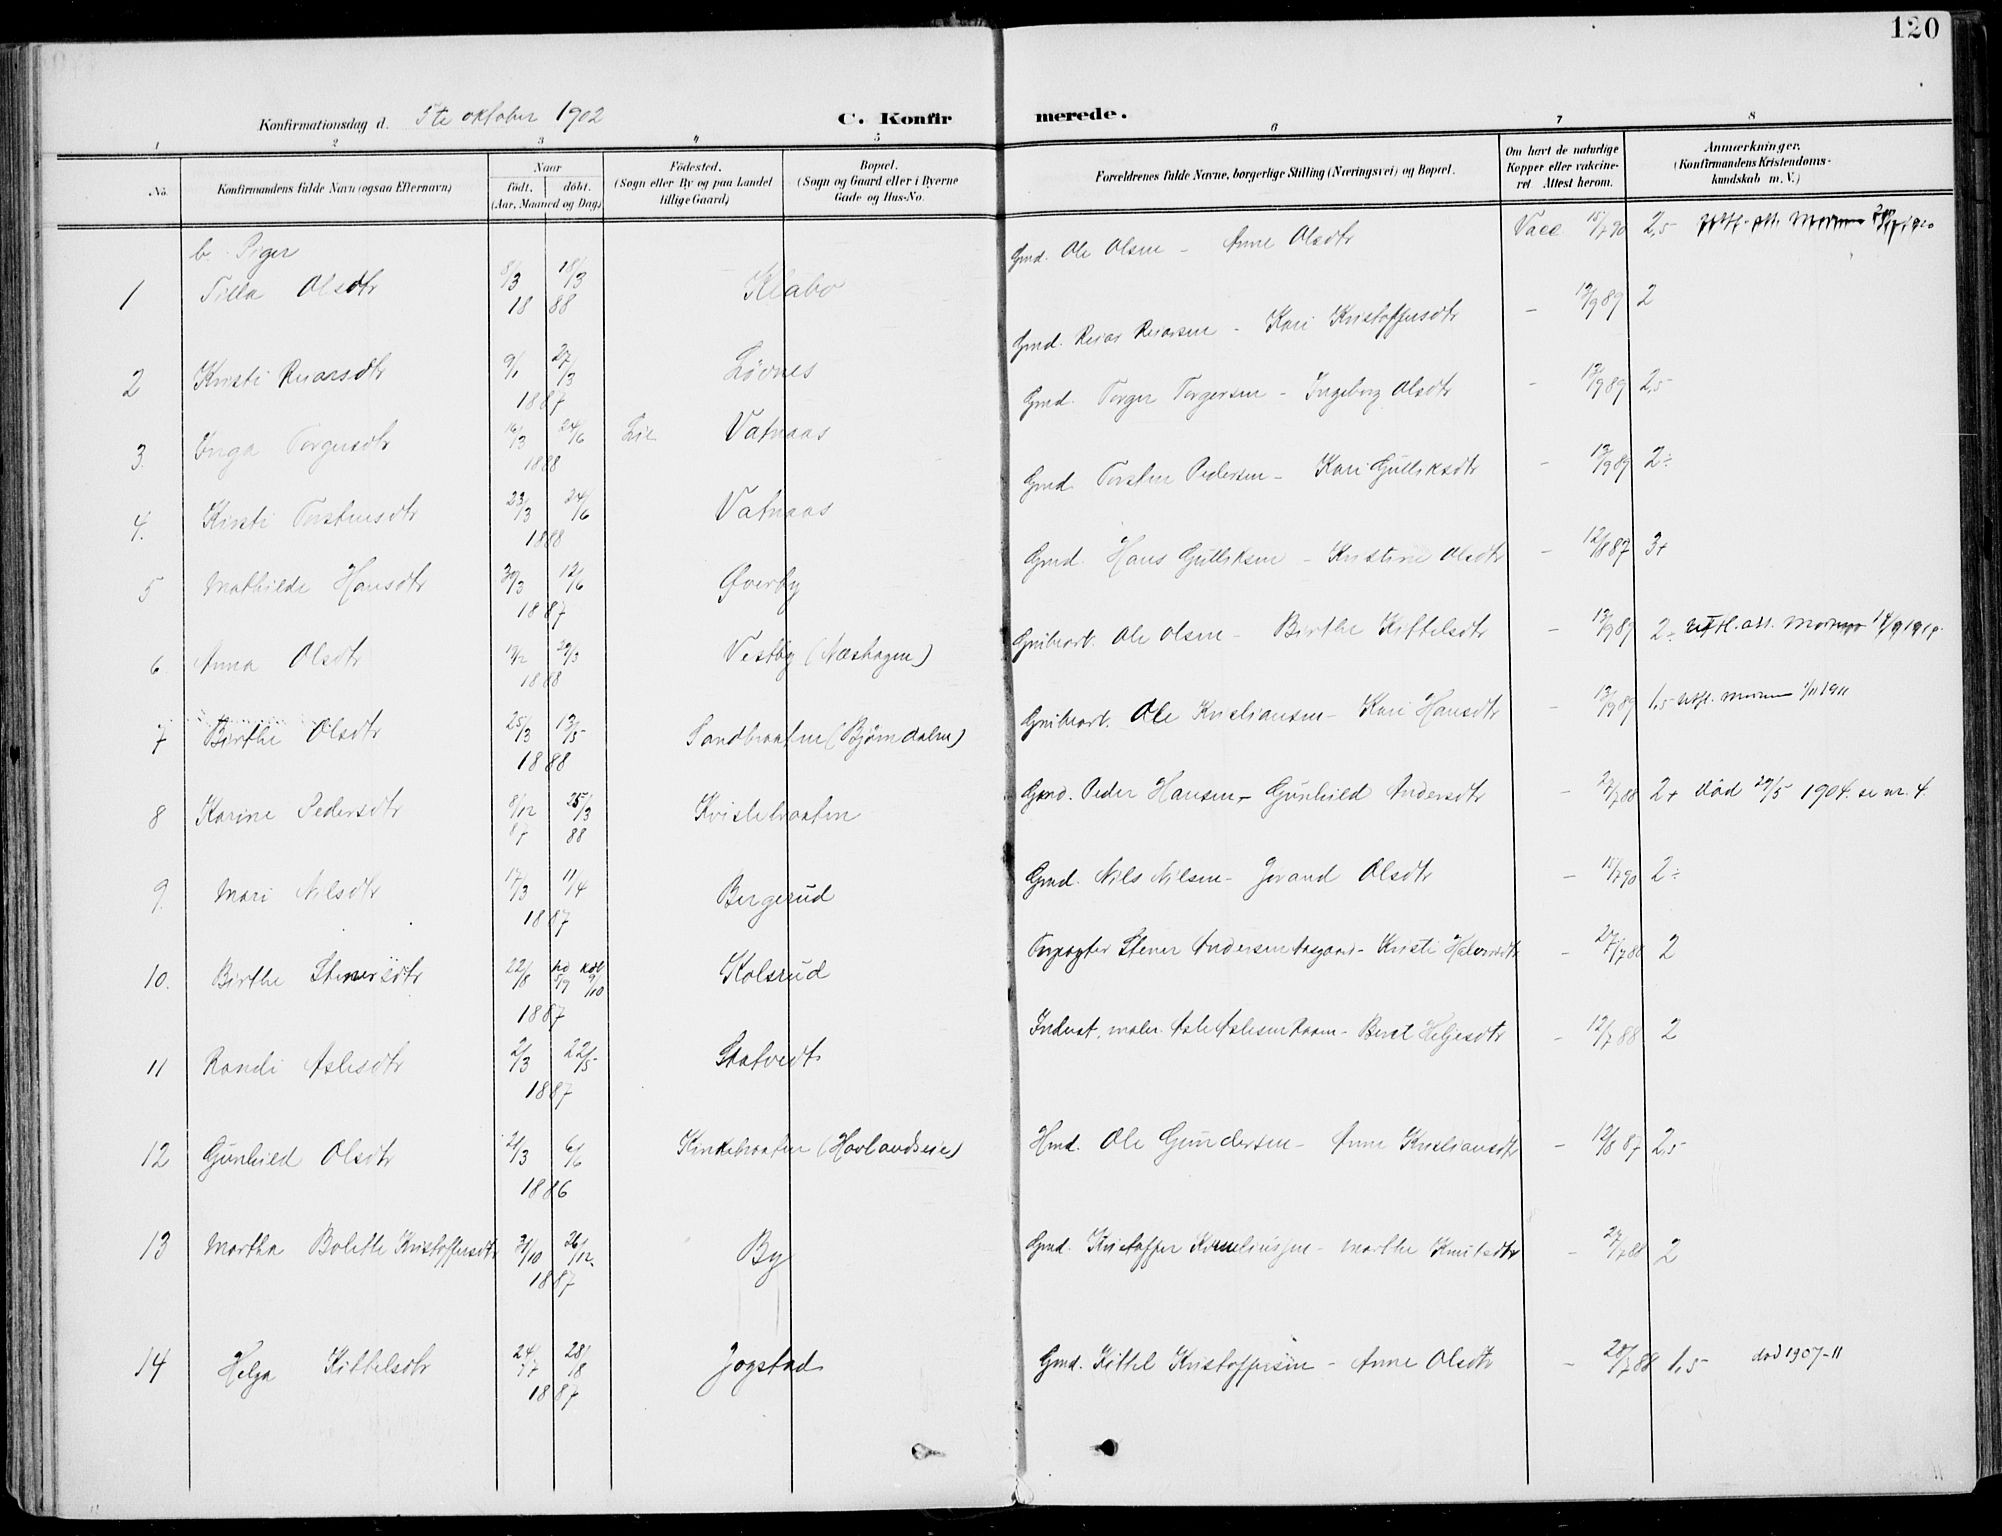 120
Konfirmationsdag d. 5te oktober 1902 C. Konfirmerede.
1 2 3 4 5 6 7 8
No. Konfirmandens fulde Navn (ogsaa Efternavn) Naar født, døbt. (Aar, Maaned og Dag) Fødested. (Sogn eller By og paa Landet tillige Gaard) Bopæl. (Sogn og Gaard eller i Byerne Gade og Hus-No. Forældrenes fulde Navne, borgerlige Stilling (Næringsvei) og Bopæl. Om havt de naturlige Kopper eller vakcineret Attest herom. Anmærkninger. (Konfirmandens Kristendomskundskab m. V.)
b. Piger
1 Tilla Olsdtr 8/3 18/3 1888 Klabo Gmd. Ole Olsen - Anne Olsdtr Vacc 15/7 90 2,5
2 Kristi Reiarsdtr 9/1 27/3 1887 Løvnes Gmd. Reiar Reiarsen - Kari Kristoffersdtr - 13/9 89 2
3. Inga Torgersdtr 16/3 24/6 1888 Lie Vatnaas Gmd. Torger Torgersen - Ingeborg Olsdtr - 13/9 89 2,5
4. Kirsti Torstensdtr 23/3 24/6 1888 Vatnaas Gmd. Torsten Pedersen - Kari Gulliksdtr - 13/9 89 2÷
5 Mathilde Hansdtr 30/3 12/6 1887 Øverby Gmd. Hans Gulliksen - Kristine Olsdtr - 12/8 87 3+
6 Anna Olsdtr 19/2 29/3 1888 Vestby (Næshagen) Grubearb. Ole Olsen - Birthe Kittelsdtr - 13/9 89 2÷
7 Birthe Olsdtr 25/3 13/5 1888 Sandbraaten (Bjørndalen) Grubearb. Ole Kristiansen - Kari Hansdtr - 13/9 89 1,5 1/11 1911
8 Karine Pedersdtr 8/12 87 25/3 88 Kvistebraaten Gmd. Peder Hansen - Gunhild Andersdtr - 27/7 88 2+ død 29/5 1904. se nr. 4.
9. Mari Nilsdtr 17/3 11/4 1887 Bergerud Gmd. Nils Nilsen - Jørand Olsdtr - 15/7 90 2÷
10. Birthe Stenersdtr 22/8 hd 5/9 kdb 9/10 1887 Kolsrud Stener Andersen Aasgaard - Kristi Halvorsdtr - 27/7 88 2
11 Randi Aslesdtr 2/3 22/5 1887 Statvedt Inderst, maler Asle Aslesen Raaen - Berit Helgesdtr - 12/7 88 2
12 Gunhild Olsdtr 21/3 6/6 1886 Kinkebraaten (Hovlandseie) Hmd. Ole Gundersen - Anne Kristiansdtr - 12/8 87 2,5
13 Martha Bolette Kristoffersdtr 31/10 26/12 1887 By Gmd. Kristoffer Korneliussen - Marthe Knutsdtr - 27/7 88 2
14 Helga Kittelsdtr 24/7 28/8 1887 Jogstad Gmd. Kittel Kristoffersen - Anne Olsdtr - 28/7 88 1,5 død 1907-11